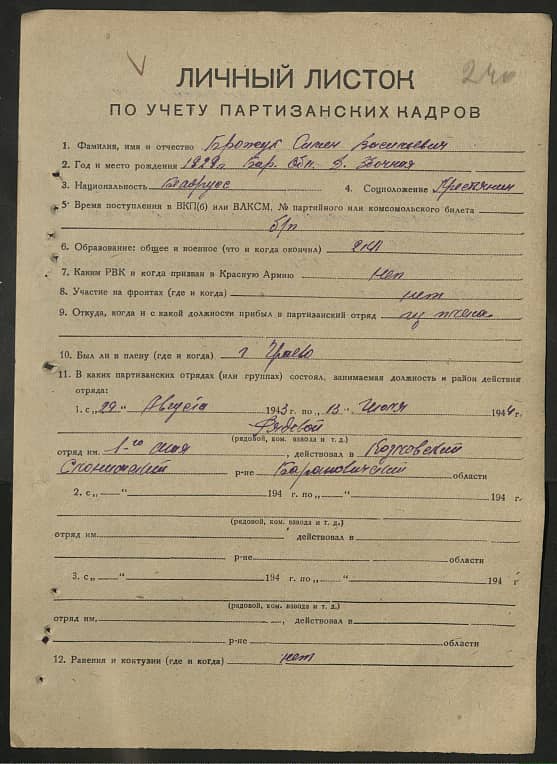 240
ЛИЧНЫЙ ЛИСТОК
ПО УЧЕТУ ПАРТИЗАНСКИХ КАДРОВ
1. Фамилия, имя и отчество Брожук Васильевич
2. Год и место рождения 1929 г Бар. Обл. д.
3. Национальность Белорус 4. Соцположение Крестьянин
5. Время поступления в ВКП(б) или ВЛКСМ, № партийного или комсомольского билета
б/п
6. Образование: общее и военное (что и когда окончил) 2 кл
7. Каким РВК и когда призван в Красную Армию нет
8. Участие на фронтах (где и когда) нет
9. Откуда, когда и с какой должности прибыл в партизанский отряд из плена
10. Был ли в плену (где и когда) г
11. В каких партизанских отрядах (или группах) состоял, занимаемая должность и район действия
отряда:
1. с „29“ Августа 1943 г. по „13“ Июля 1944 г.
Рядовой
(рядовой, ком. взвода и т. д.)
отряд им. 1-го мая, действовал в Козловский
Слонимский р-не Барановичский области
2. с „ “ 194 г. по „ “ 194 г.
(рядовой, ком. взвода и т. д.)
отряд им. , действовал в
р-не области
3. с „ “ 194 г. по „ “ 194 г
(рядовой, ком. взвода и т. д.)
отряд им. , действовал в
р-не области
12. Ранения и контузии (где и когда) нет